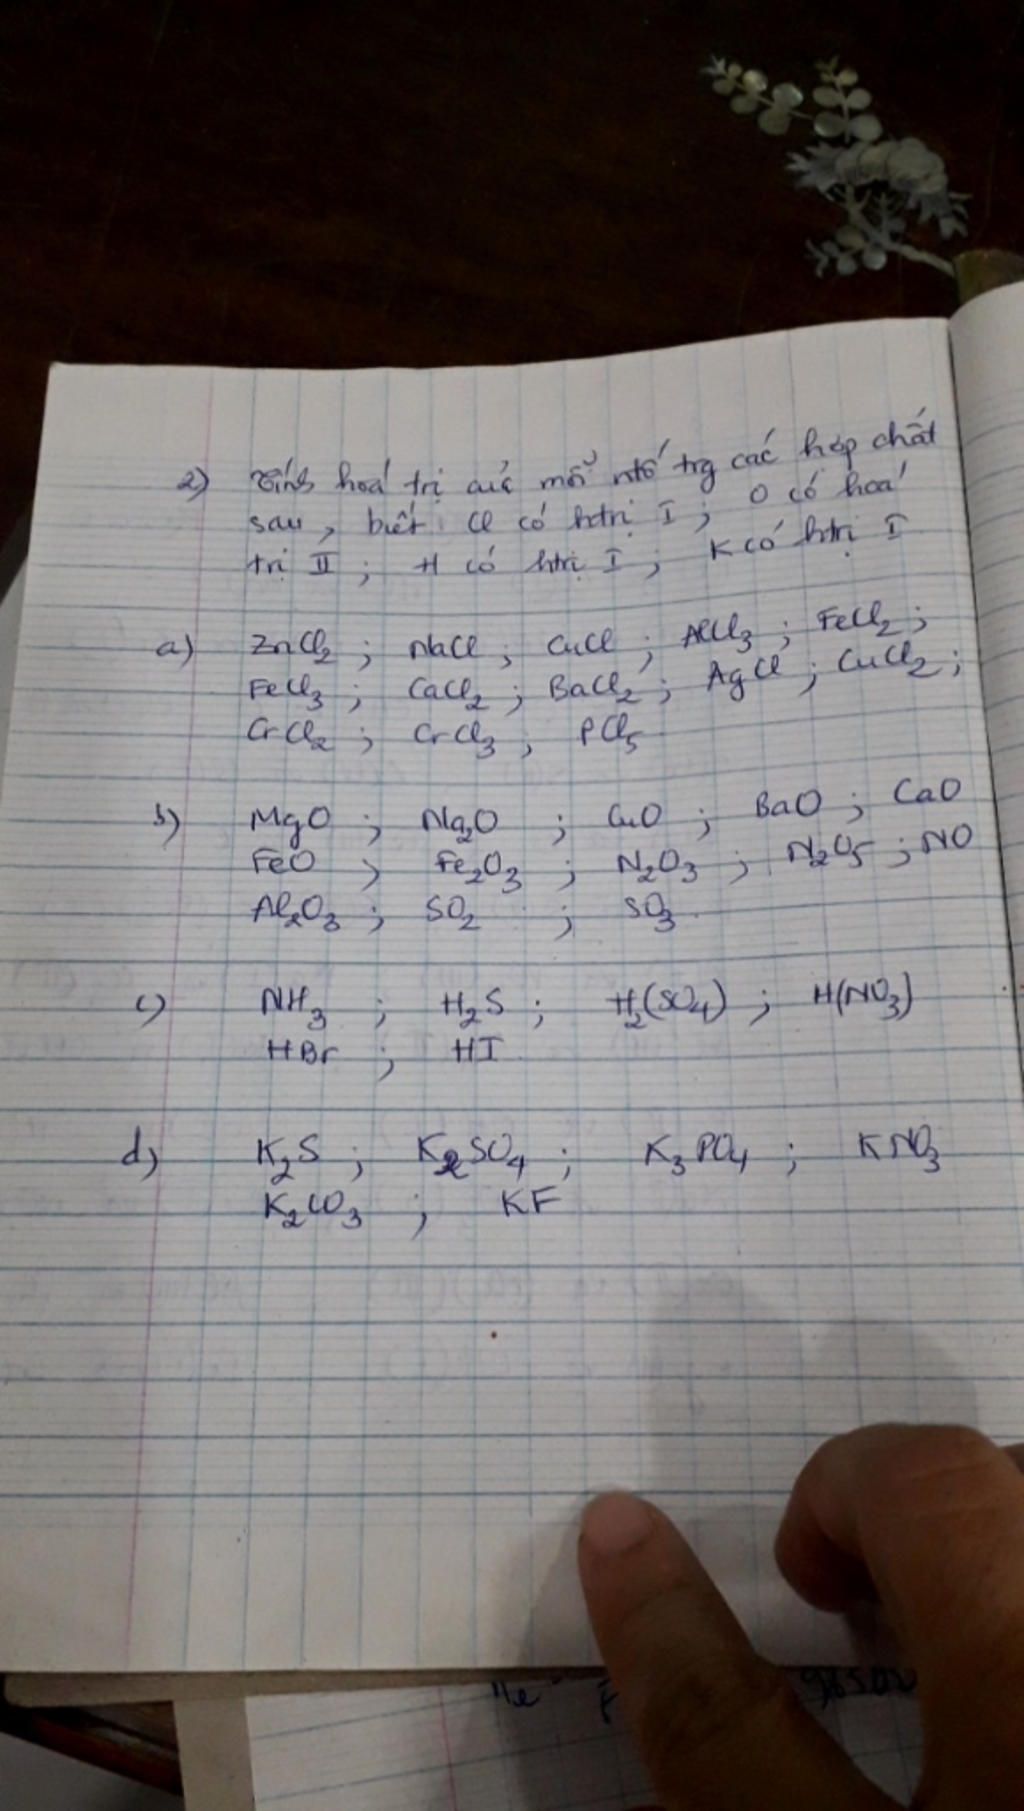 2) Tính hoá trị của mỗi ntố trg các hợp chất
sau, biết Cl có htrị I; O có hoá
trị II; H có htrị I; K có htrị I
a) ZnCl₂; NaCl; CuCl; AlCl₃; FeCl₂;
FeCl₃; CaCl₂; BaCl₂; AgCl; CuCl₂;
CrCl₂; CrCl₃; PCl₅
b) MgO; Na₂O; CuO; BaO; CaO
FeO; Fe₂O₃; N₂O₃; N₂O₅; NO
Al₂O₃; SO₂; SO₃.
c) NH₃; H₂S; H₂(SO₄); H(NO₃)
HBr; HI
d) K₂S; K₂SO₄; K₃PO₄; KNO₃
K₂CO₃; KF